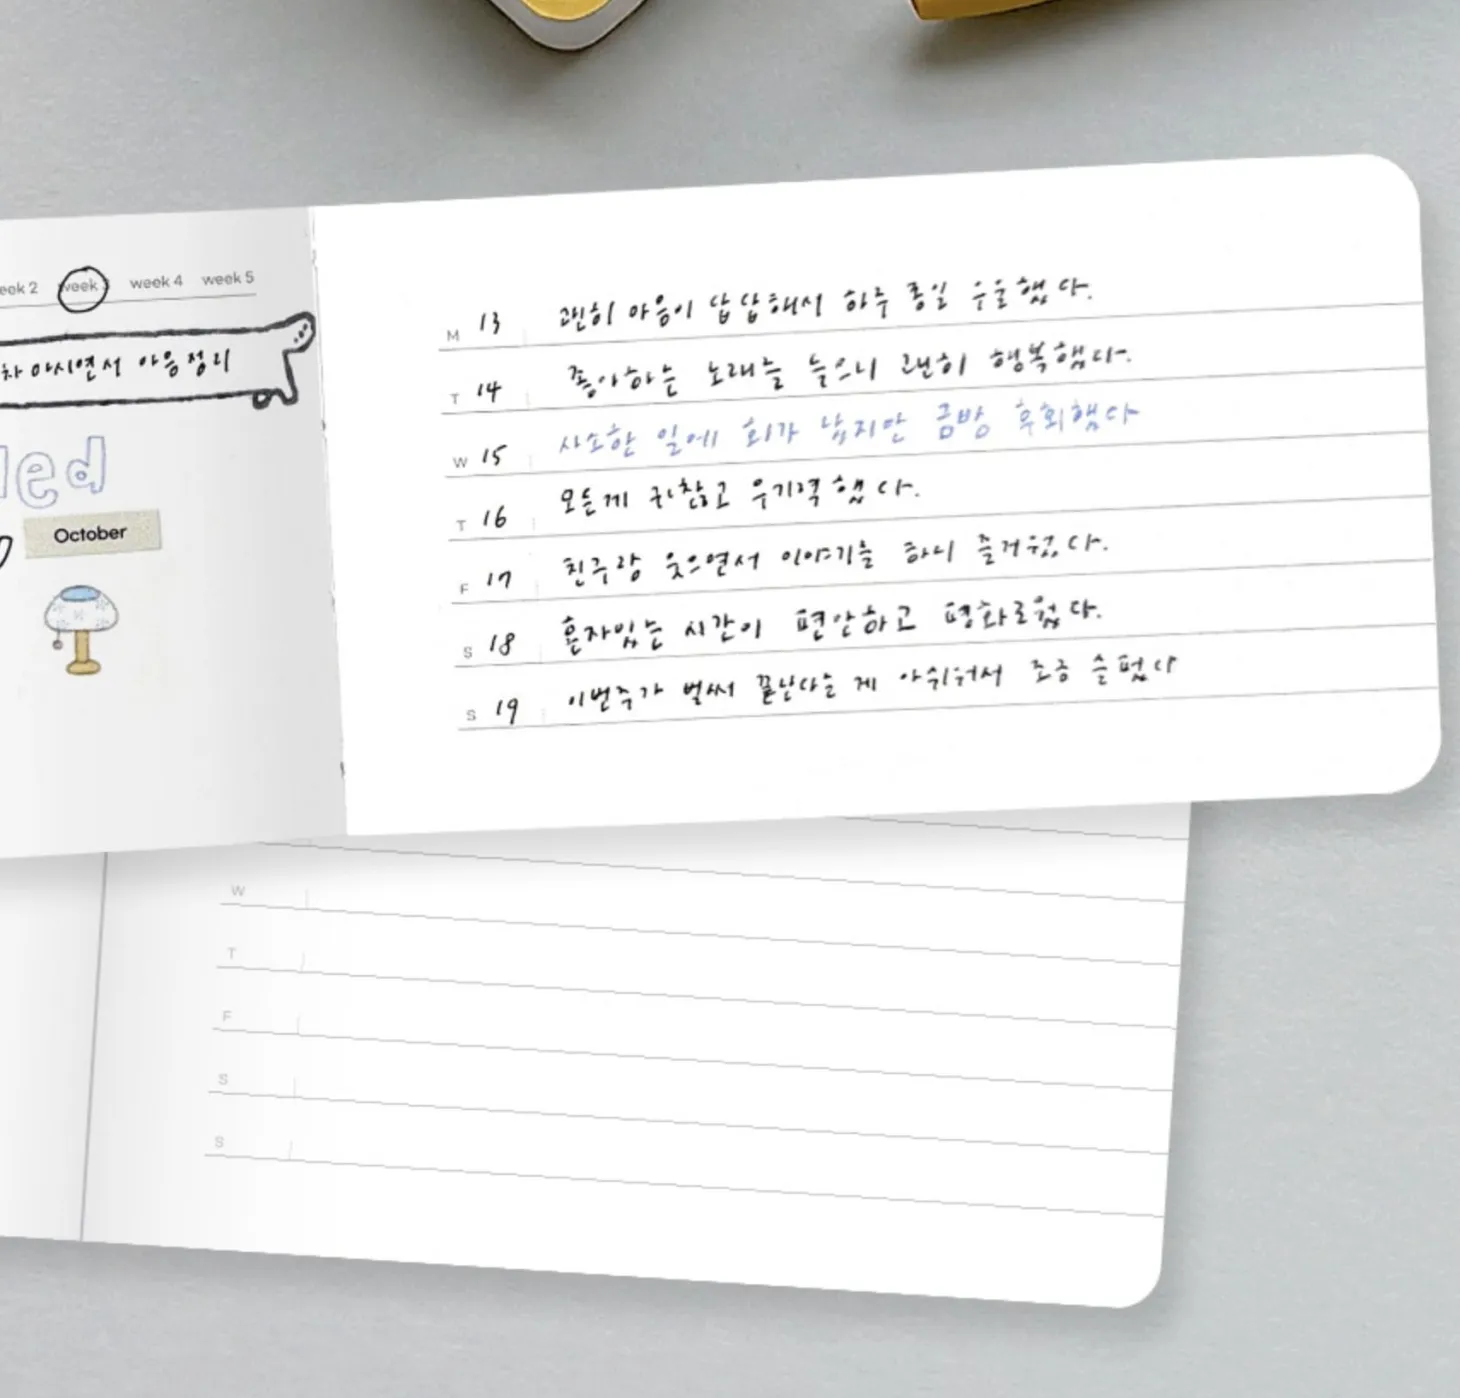 eek 2 week 3 week 4 week 5
차 마시면서 마음정리
led
October
M 13 괜히 마음이 답답해서 하루 종일 우울했다.
T 14 좋아하는 노래를 들으니 괜히 행복했다.
W 15 사소한 일에 화가 났지만 금방 후회했다
T 16 모든게 귀찮고 무기력했다.
F 17 친구랑 웃으면서 이야기를 하니 즐거웠다.
S 18 혼자있는 시간이 편안하고 평화로웠다.
S 19 이번주가 벌써 끝난다는 게 아쉬워서 조금 슬펐다
W
T
F
S
S